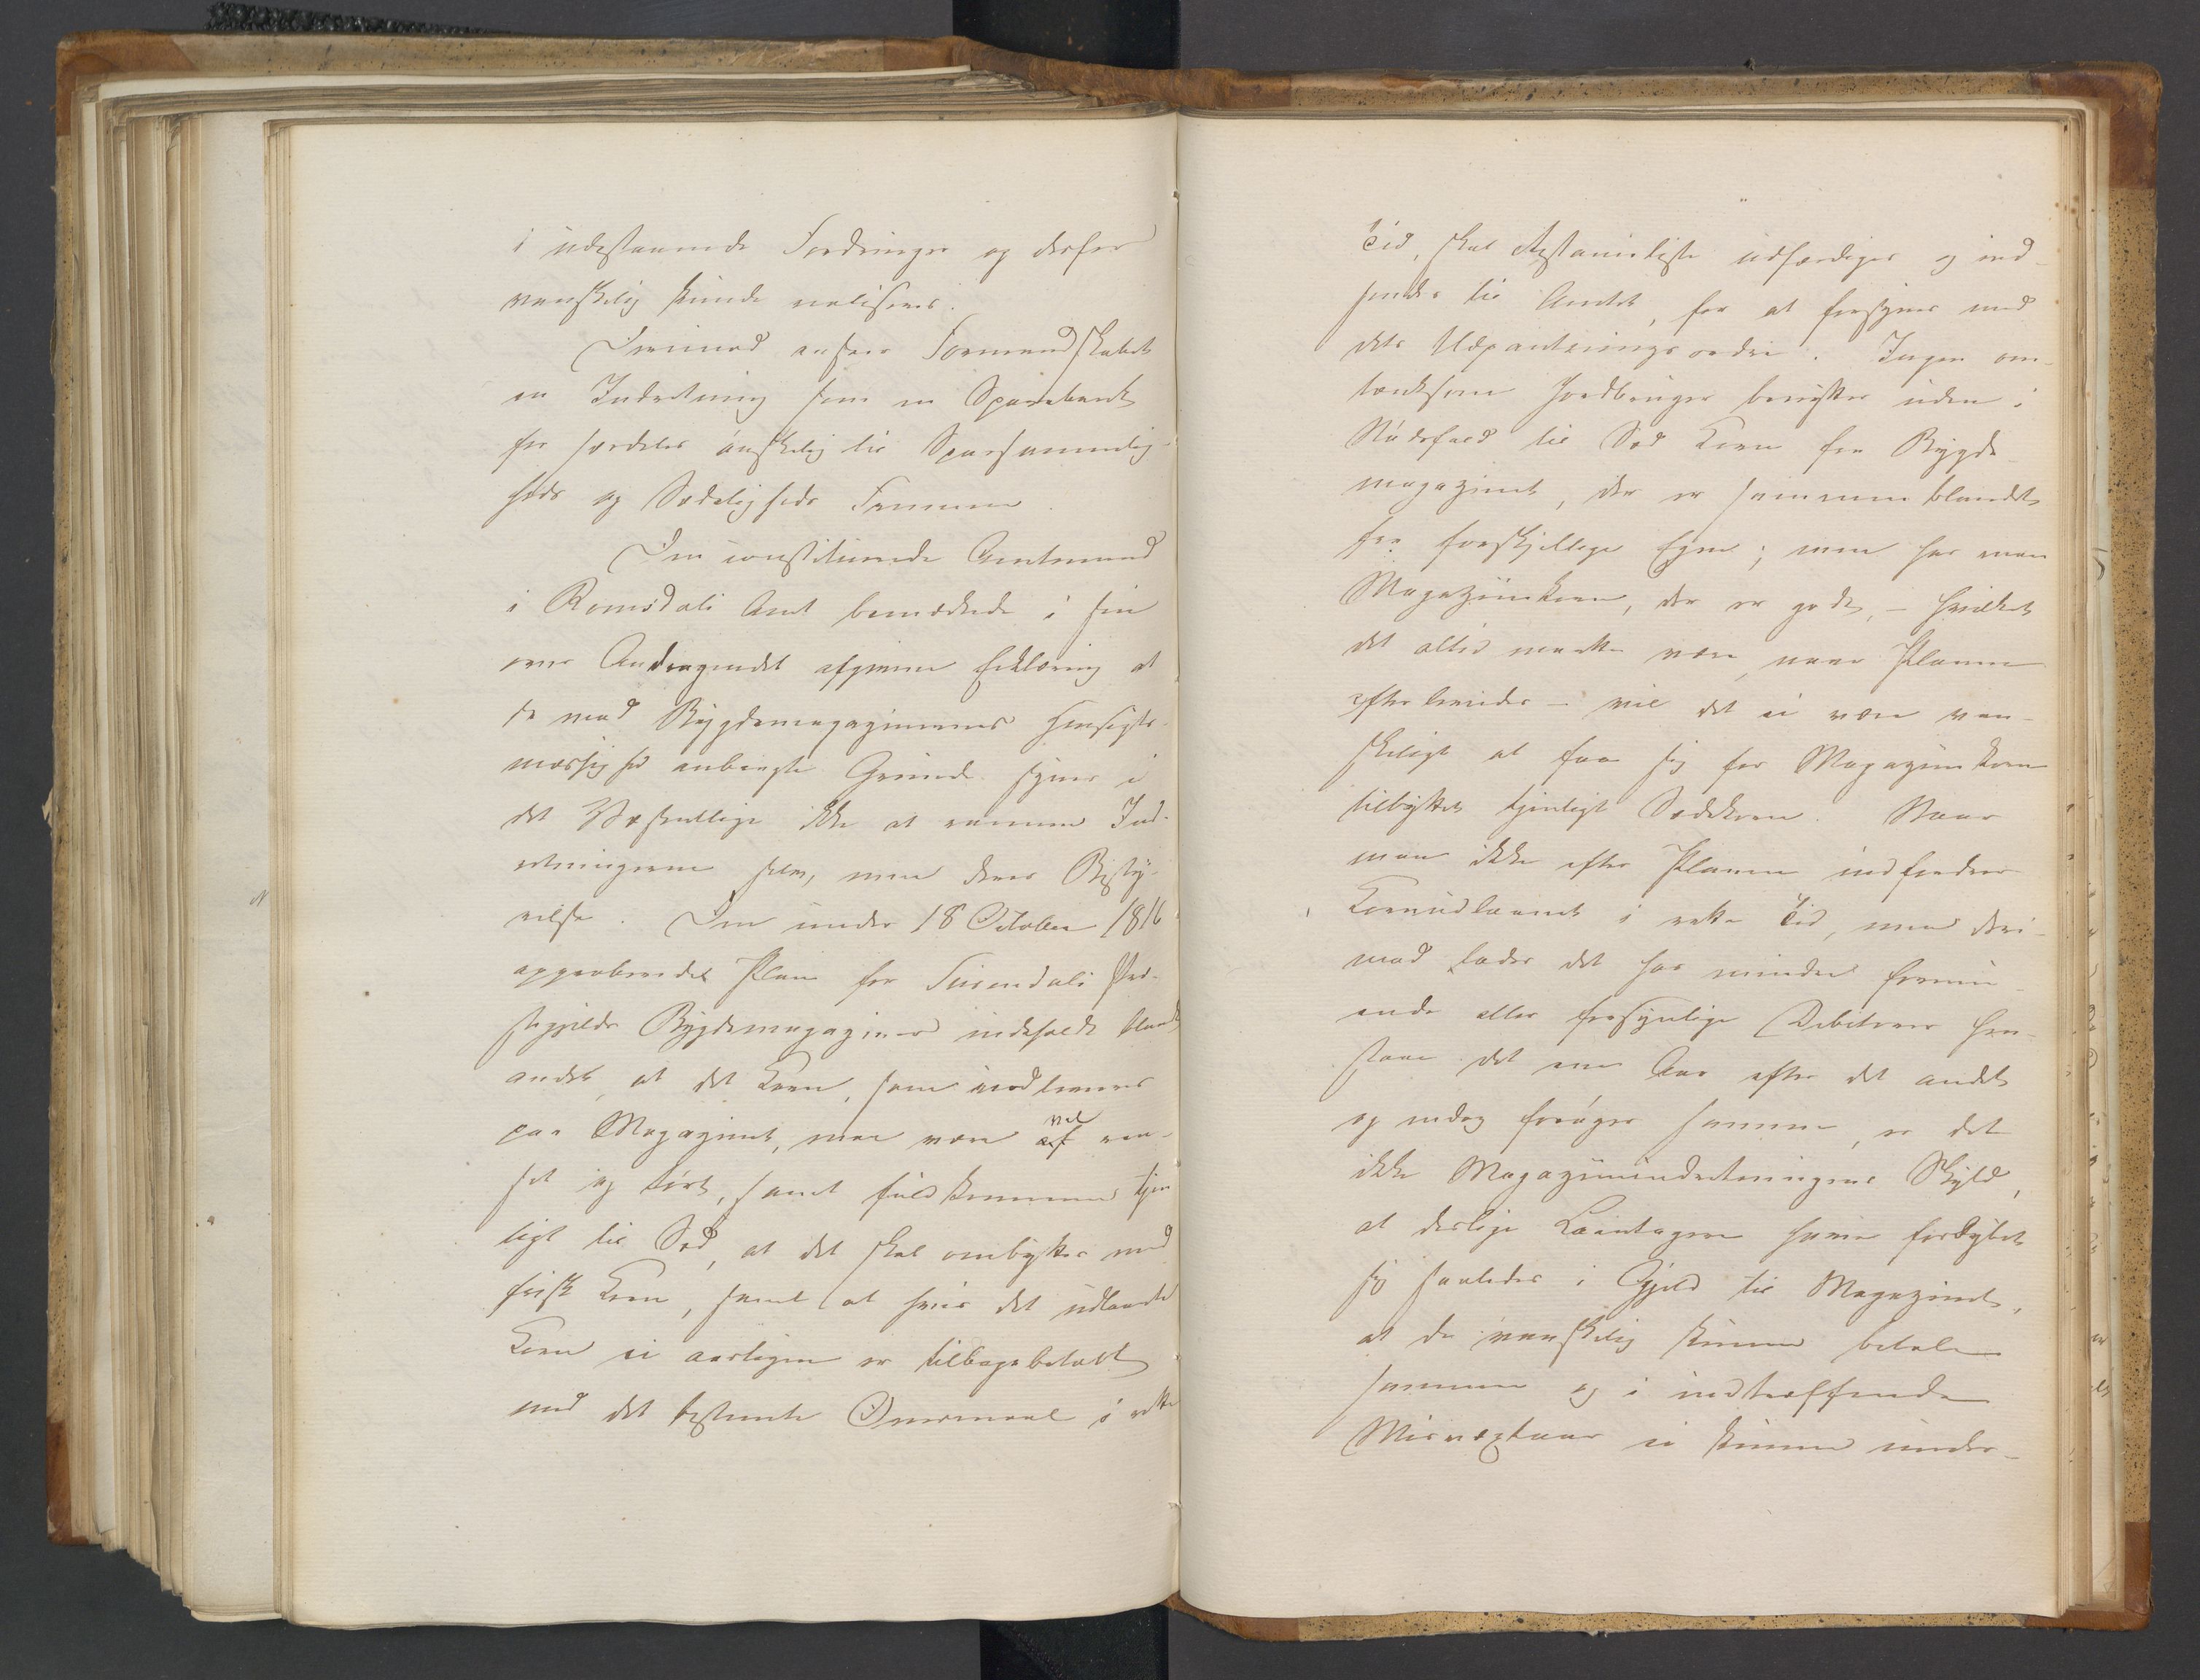 i udestaaende Fordringer og derfor
vanskelig kunde realiseres.
Derimod ansees Formandskabet
en Indretning som en Sparebank
for særdeles ønskelig til Sparsommelig-
heds og Sædeligheds Fremme.
Den constituerede Amtmand
i Romsdals Amt bemærkede i sin
over Andragendet afgivne Erklæring at
de mod Bygdemagazinernes Hensigts-
mæssighed anbragte Grunde synes i
det Væsentlige ikke at ramme Ind-
retningerne selv, men deres Besty-
relse. Den under 18 October 1816
approberede Plan for Surendals Præ-
stegjelds Bygdemagaziner indeholdt blandt
andet, at det Korn, som indleveres
paa Magazinet, maa være vel ren-
set og tørt, samt fuldkommen tjen
ligt til Sæd, at det skal ombyttes med
frisk Korn, samt at hvis det udlaante
Korn ei aarligen er tilbagebetalt
med det bestemte Overmaal i rette
Tid, skal Restanceliste udfærdiges og ind-
sendes til Amtet, for at forsynes med
dets Udpantningsordre. Ingen om-
tænksom Jordbruger benytter uden i
Nødsfald til Sæd Korn fra Bygde-
magazinet, der er sammenblandet
fra forskjellige Egne; men har man
Magazinkorn, der er godt, - hvilket
det altid maatte være, naar Planen
efterlevedes - vil det ei være van-
skeligt at faae sig for Magazinkorn
tilbyttet tjenligt Sædekorn. Naar
man ikke efter Planen indfordrer
Kornudlaanet i rette Tid, men deri-
mod lader det hos mindre formu-
ende eller forsynlige Debitorer hen-
staae det ene Aar efter det andet
og endog forøger samme, er det
ikke Magazinindretningens Skyld,
at deslige Laantagere have fordybet
sig saaledes i Gjæld til Magazinet,
at de vanskelig kunne betale
samme og i indtræffende
Misvæxtaar ei kunne under-